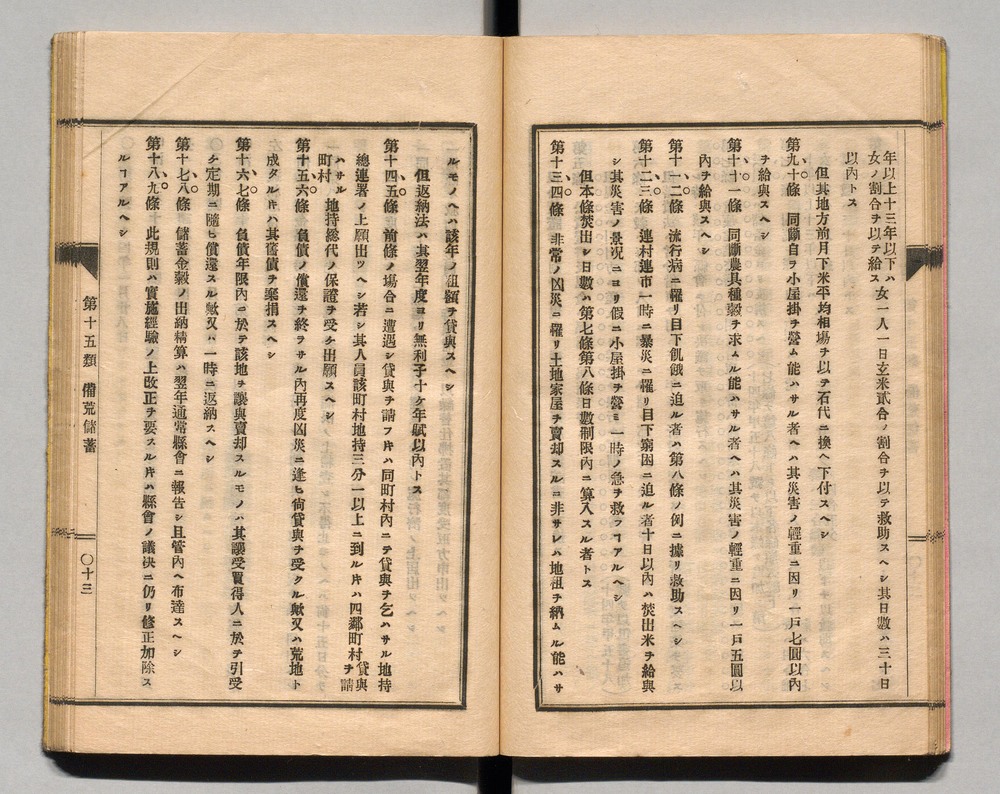 年以上十三年以下ハ
女ノ割合ヲ以テ給ス
女一人一日玄米貳合ノ割合ヲ以テ救助スヘシ其日數ハ三十日
以內トス
但其地方前月下米平均相場ヲ以テ石代ニ換ヘ下付スヘシ
第九十條 同斷自ラ小屋掛ヲ營ム能ハサル者ヘハ其災害ノ輕重ニ因リ一戶七圓以內
ヲ給與スヘシ
第十十一條 同斷農具種穀ヲ求ムル能ハサル者ヘハ其災害ノ輕重ニ因リ一戶五圓以
內ヲ給與スヘシ
第十一二條 流行病ニ罹リ目下飢餓ニ迫ル者ハ第八條ノ例ニ據リ救助スヘシ
第十二三條 連村連市一時ニ暴災ニ罹リ目下窮困ニ迫ル者十日以內ハ焚出米ヲ給與
シ其災害ノ景况ニヨリ假ニ小屋掛ヲ營ミ一時ノ急ヲ救フヿアルヘシ
但本條焚出シ日數ハ第七條第八條日數制限內ニ算入スル者トス
第十三四條 非常ノ凶災ニ罹リ土地家屋ヲ賣却スルニ非サレハ地租ヲ納ムル能ハサ
ルモノヘハ該年ノ租額ヲ貸與スヘシ
但返納法ハ其翌年度ヨリ無利子十ケ年賦以內トス
第十四五條 前條ノ場合ニ遭遇シ貸與ヲ請フキハ同町村內ニテ貸與ヲ乞ハサル地持
總連署ノ上願出ツヘシ若シ其人員該町村地持三分一以上ニ到ルキハ四鄰町村貸與ヲ請
ハサル町村
地持總代ノ保證ヲ受ケ出願スヘシ
第十五六條 負債ノ償還ヲ終ラサル內再度凶災ニ逢ヒ尙貸與ヲ受クル歟又ハ荒地ト
成タルキハ其舊債ヲ棄捐スヘシ
第十六七條 負債年限內ニ於テ該地ヲ讓與賣却スルモノハ其讓受買得人ニ於テ引受
ケ定期ニ隨ヒ償還スル歟又ハ一時ニ返納スヘシ
第十七八條 儲蓄金穀ノ出納精算ハ翌年通常縣會ニ報告シ且管內ヘ布達スヘシ
第十八九條 此規則ハ實施經驗ノ上改正ヲ要スルキハ縣會ノ議决ニ仍リ修正加除ス
ルヿアルヘシ
第十五類 備荒儲蓄
〇十三